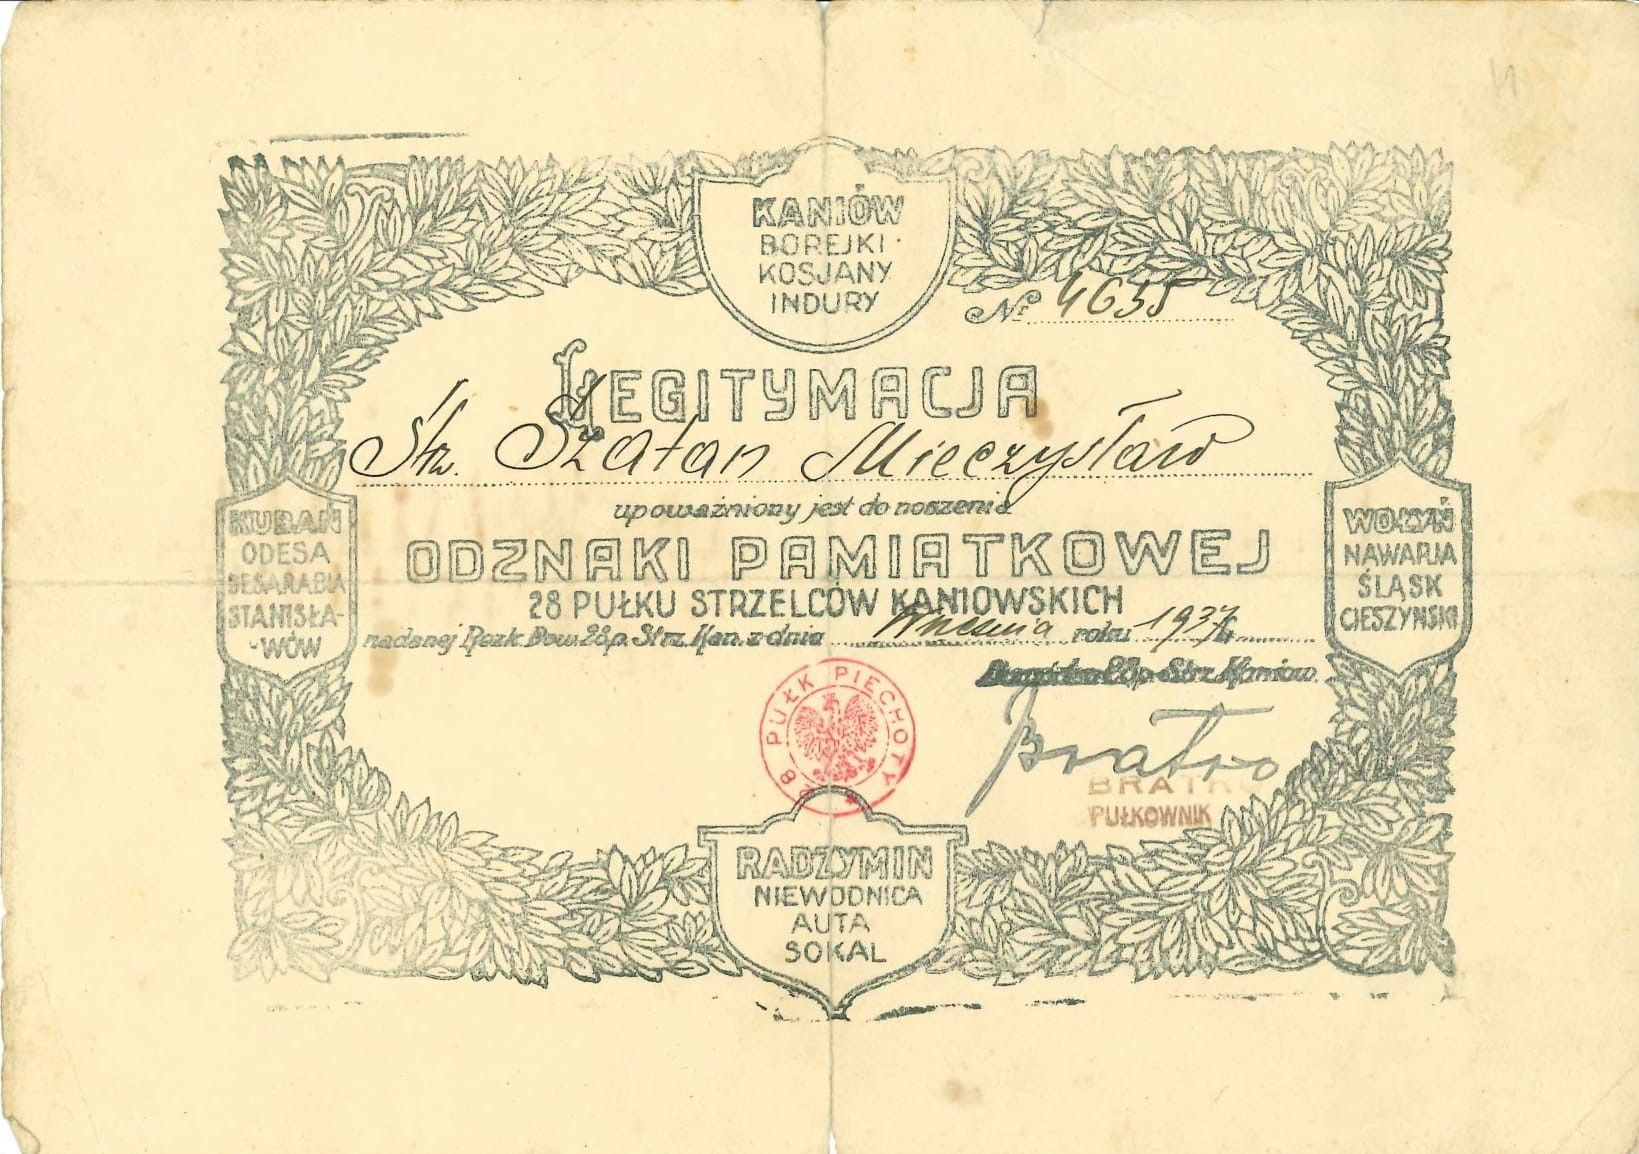 KANIÓW
BOREJKI
KOSJANY
INDURY
Nr 4655
LEGITYMACJA
Str. Szatan Mieczysław
upoważniony jest do noszenia
ODZNAKI PAMIĄTKOWEJ
28 PUŁKU STRZELCÓW KANIOWSKICH
nadanej Rozk. Dow. 28 p. Strz. Kan. z dnia Września roku 1937 r.
28 p. Strz. Kaniow.
KUBAŃ
ODESA
BESARABIA
STANISŁA-
-WÓW
WOŁYŃ
NAWARJA
ŚLĄSK
CIESZYŃSKI
28 PUŁK PIECHOTY
Bratro
BRATRO
PUŁKOWNIK
RADZYMIN
NIEWODNICA
AUTA
SOKAL